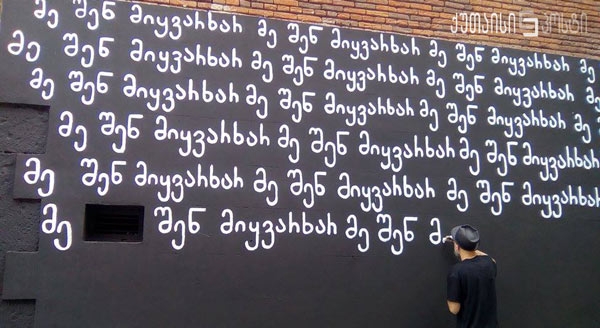 ქუთაისი პოსტი
მე შენ მიყვარხარ მე შენ მიყვარხარ მე შენ მიყვარხარ მე
მე შენ მიყვარხარ მე შენ მიყვარხარ მე შენ მიყვარხარ მე
მე შენ მიყვარხარ მე შენ მიყვარხარ მე შენ მიყვარხარ მე
მე შენ მიყვარხარ მე შენ მიყვარხარ მე შენ მიყვარხარ
მე შენ მიყვარხარ მე შენ მიყვარხარ მე შენ მიყვარხარ
მე შენ მიყვარხარ მე შენ მ